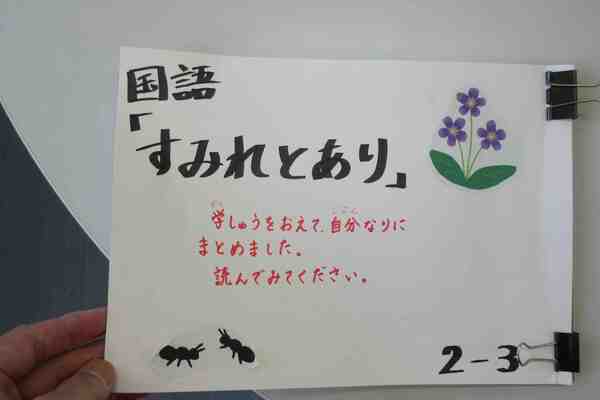 国語
「すみれとあり」
学しゅうをおえて、自分なりに
まとめました。
読んでみてください。
2-3